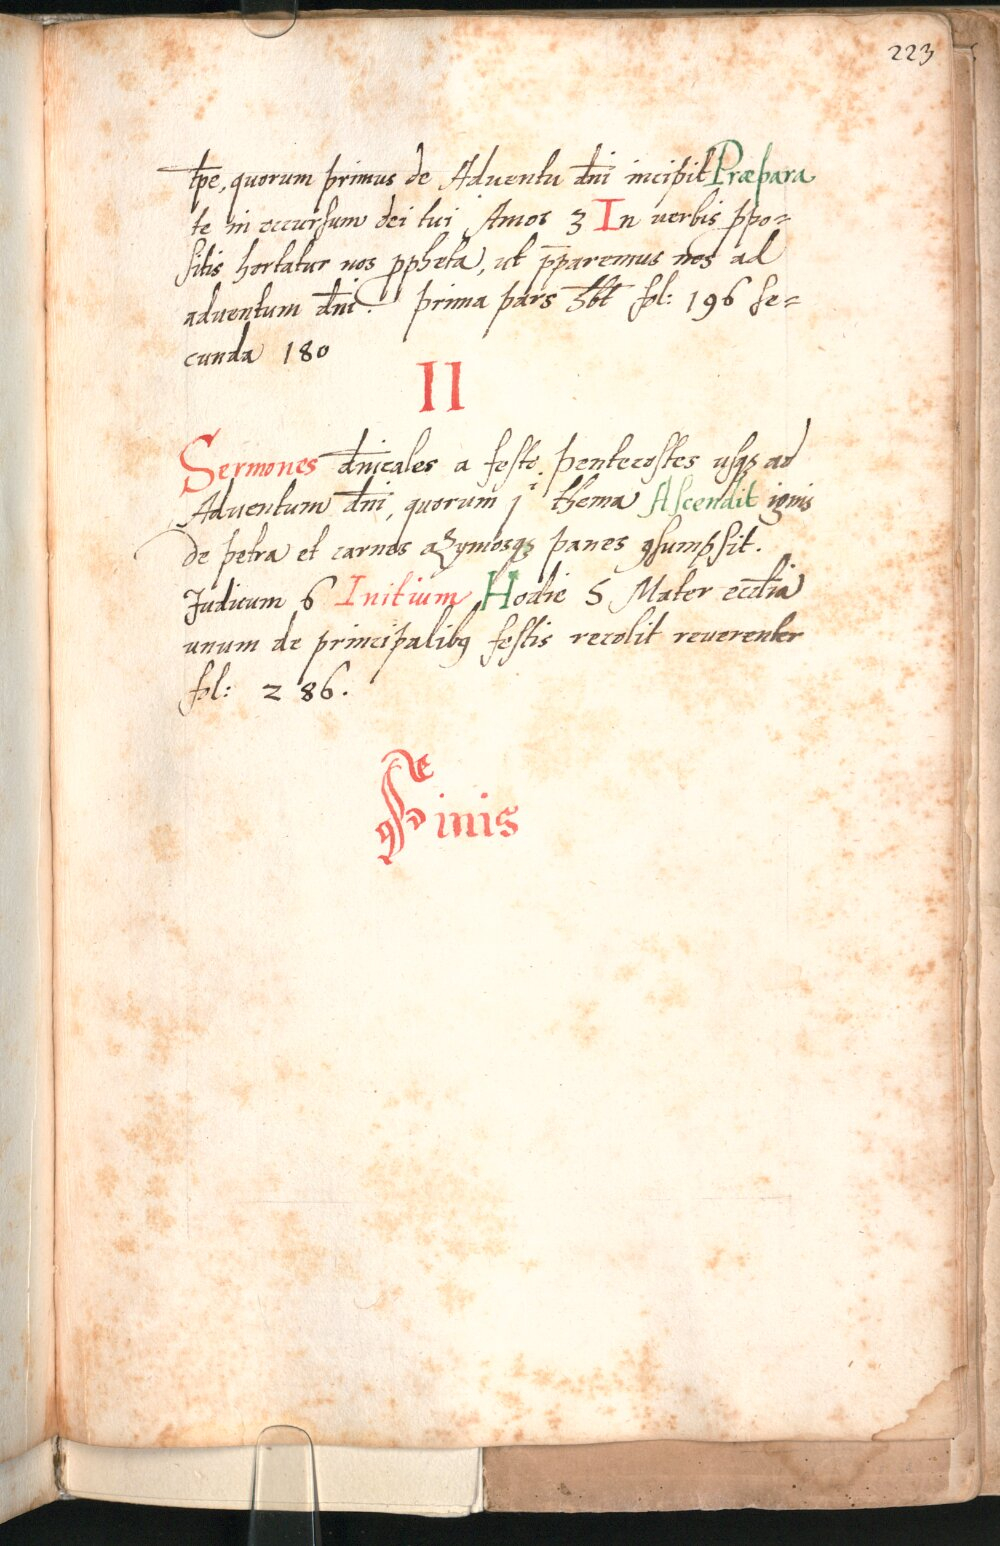 223
tp̄e, quorum primus de Adventu dn̄i incipit Præpara
te in occursum dei tui Amos 3 In verbis ꝓpo=
sitis hortatur nos ꝓpheta, ut p̄paremus nos ad
adventum dn̄i. prima pars hb̄t fol: 196 se=
cunda 180
II
Sermones dn̄icales a festo pentecostes usqꝫ ad
Adventum dn̄i, quorum jⁱ thema Ascendit ignis
de petra et carnes azymosqꝫ panes ꝯsumpsit.
Judicum 6 Initium Hodie S. Mater eccl̄ia
unum de principalibꝯ festis recolit reverenter
fol: 286.
Finis